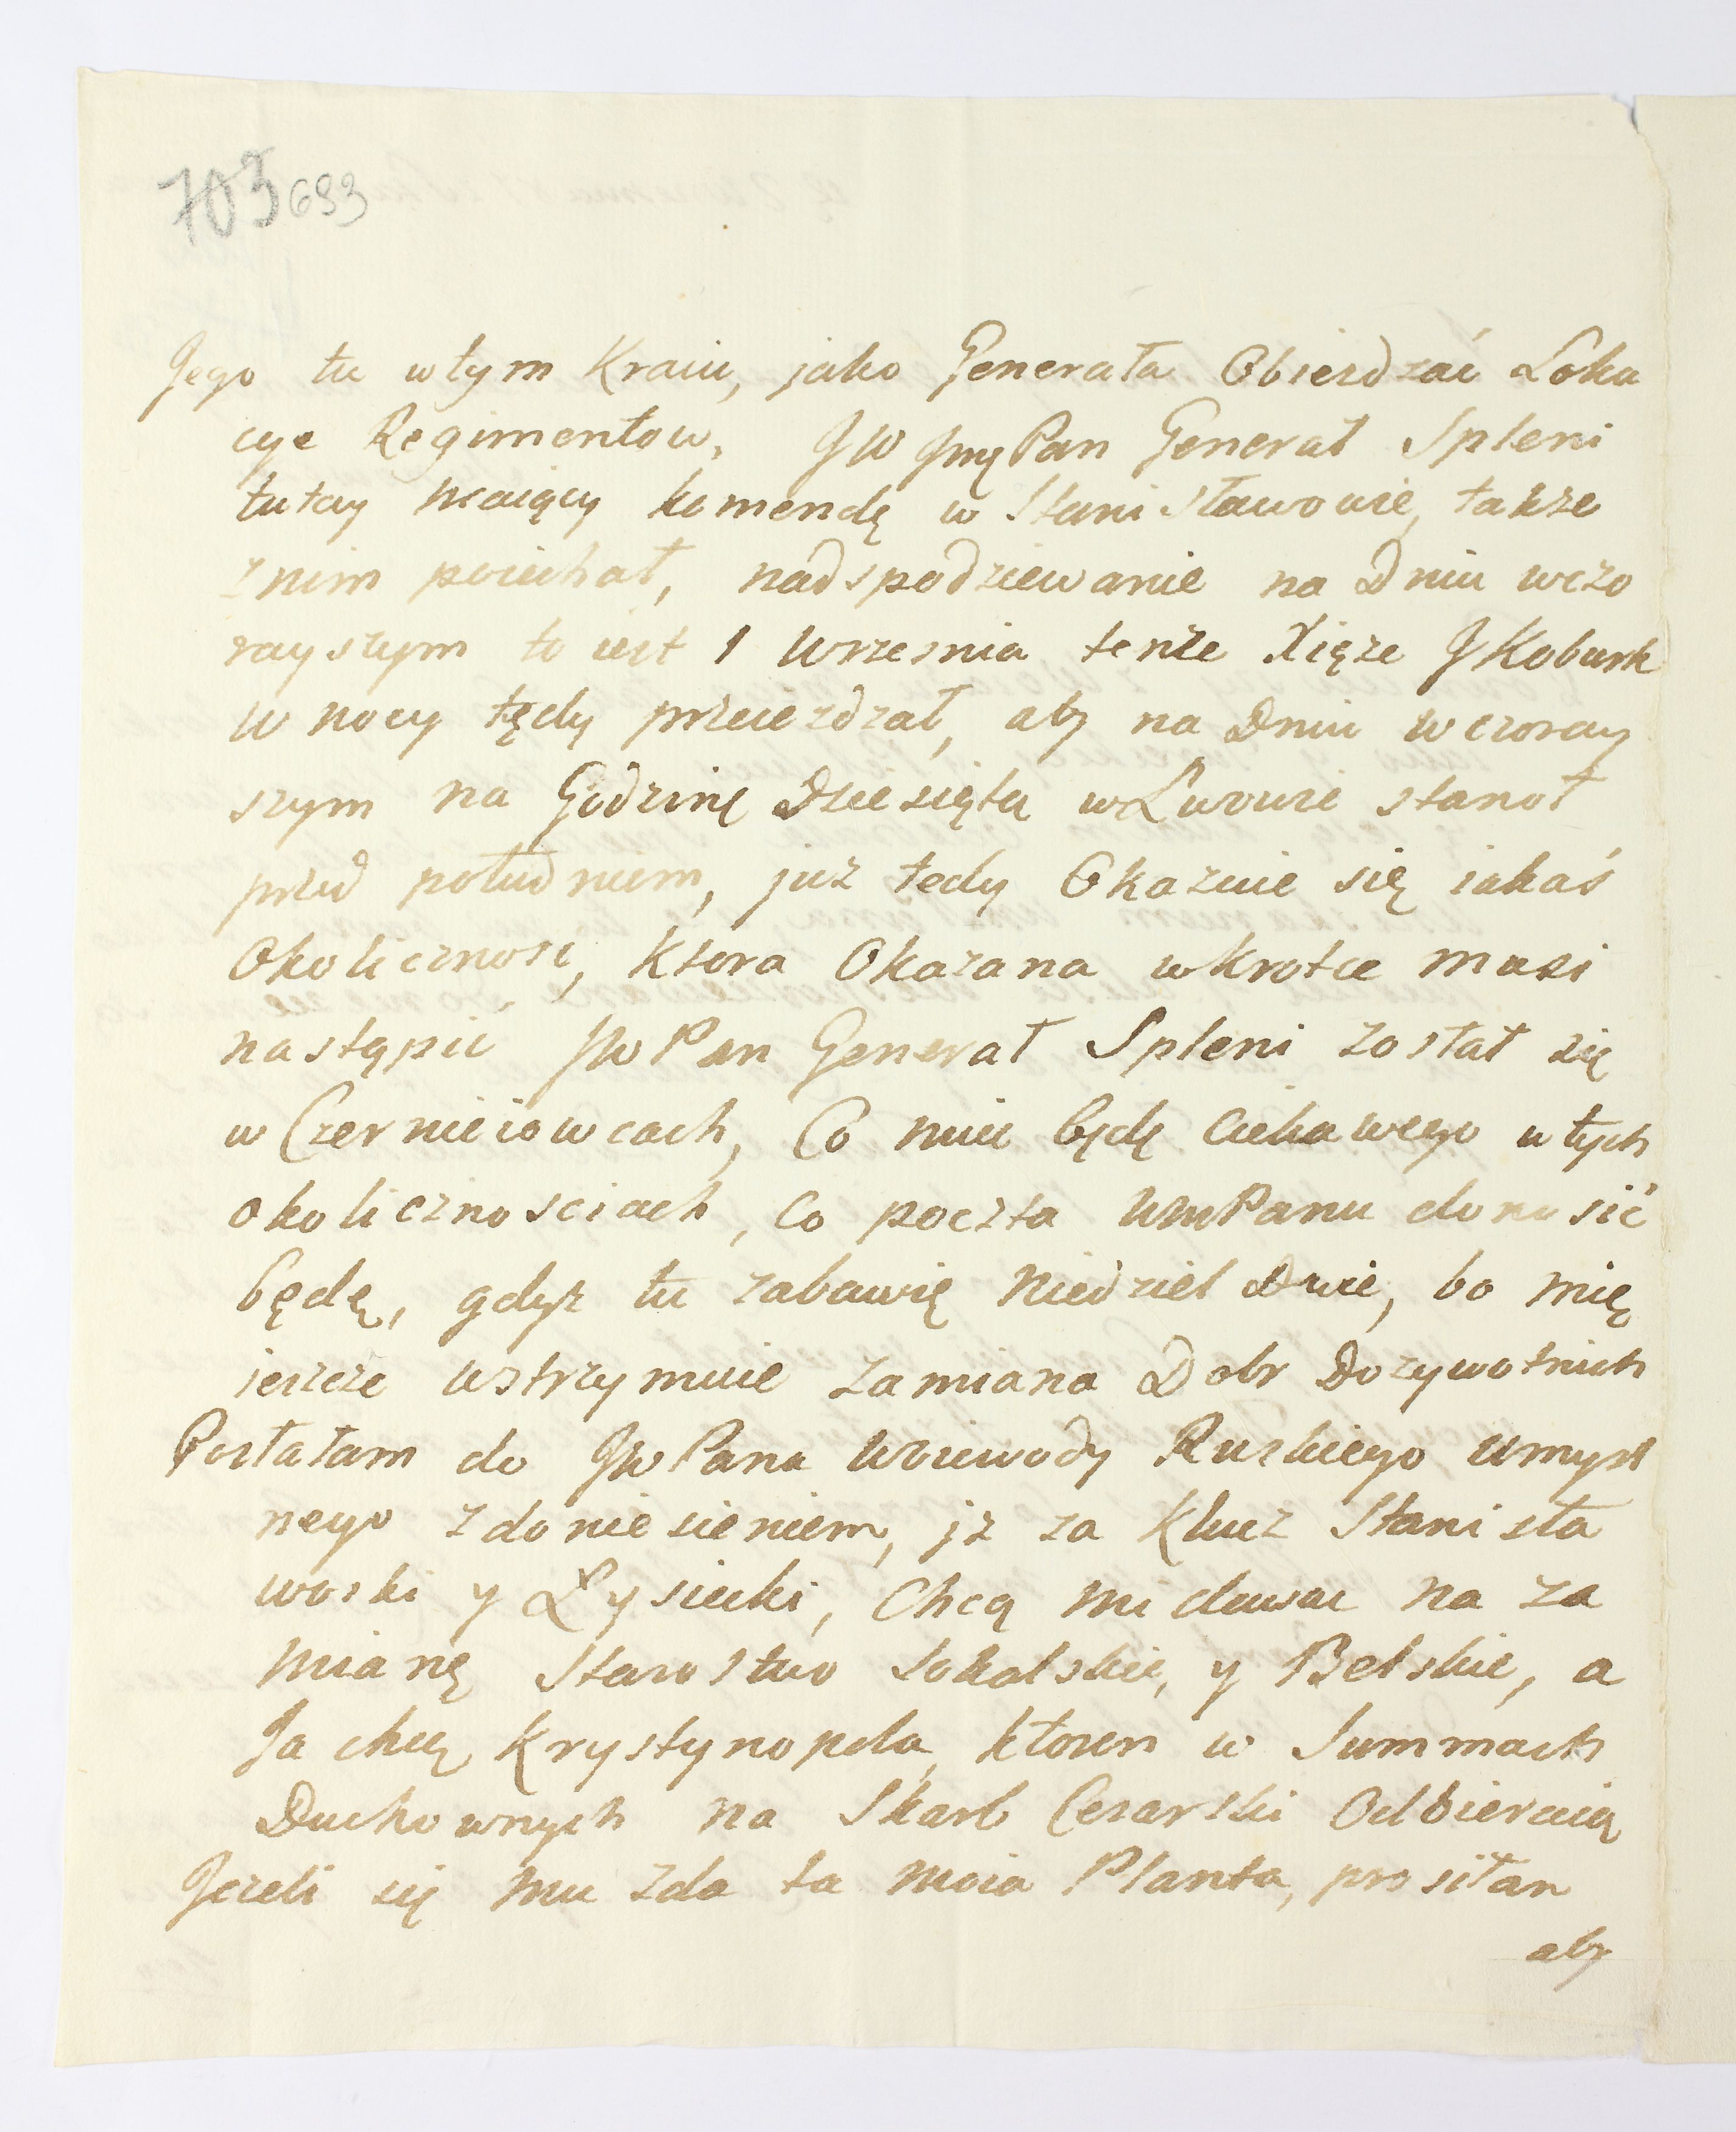 703 693
Jego tu wtym Kraiu, jako Generała Obierdzać Loka
cye Regimentow, JW JmęPan Generał Spleni
tutay maiący komendę w Stanisławowie, także
znim poiechał, nadspodziewanie na Dniu wczo
rayszym to iest 1 Wrzesnia tenże Xięże JKoburk
w nocy tędy przeiezdzał, aby na Dniu wczoray
szym na Godzinę Dziesięta wLwowie stanoł
przed południem, już tedy Okazuie się iakaś
Okolicznosc, ktora Okazana wkrotce musi
nastąpić JWPan Generał Spleni został się
w Czernieiowcach, Co miec będę Ciekawego w tych
okolicznosciach, co poczta WmPanu donosić
będę, gdyż tu zabawię Niedziel Dwie, bo mię
ieszcze wstrzymuie zamiana Dobr Dozywotnich
Posłałam do JWPana Woiewody Ruskiego umysl
nego z doniesieniem, jz za Klucz Stanisła
woski y Łysiecki, Chcą mi dawac na za
mianę Starostwo Sokalskie, y Bełskie, a
Ja chcę Krystynopola, ktoren w Summach
Duchownych na Skarb Cesarski Odbieraią
Jezeli się mu zda ta moia Planta, prosiłam
aby